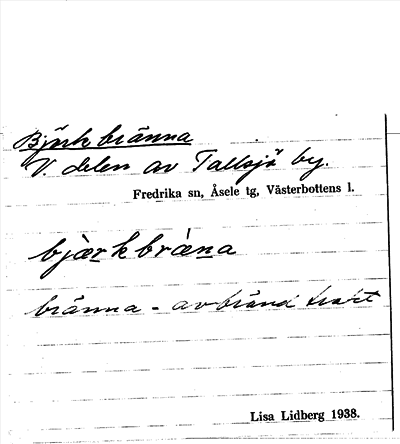 Björkbränna
V. delen av Tallsjö by.
Fredrika sn, Åsele tg, Västerbottens l.
bjæ̀rkbræ̀na
bränna - avbränd trakt
Lisa Lidberg 1938.